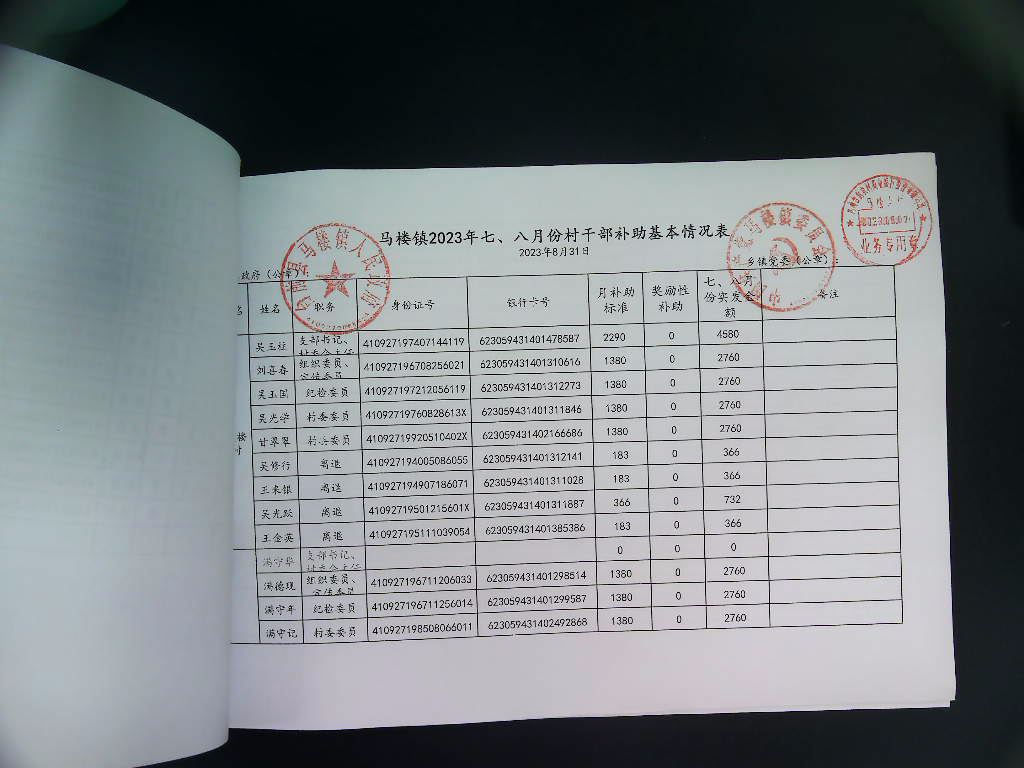 马楼镇2023年七、八月份村干部补助基本情况表
2023年8月31日
政府（公章） 乡镇党委（公章）：
名 姓名 职务 身份证号 银行卡号 月补助标准 奖励性补助 七、八月份实发金额 备注
吴玉柱 支部书记、村委会主任 410927197407144119 623059431401478587 2290 0 4580
刘喜春 组织委员、宣传委员 410927196708256021 623059431401310616 1380 0 2760
吴玉国 纪检委员 410927197212056119 623059431401312273 1380 0 2760
吴光学 村委委员 41092719760828613X 623059431401311846 1380 0 2760
甘翠翠 村委委员 41092719920510402X 623059431402166686 1380 0 2760
吴修行 离退 410927194005086055 623059431401312141 183 0 366
王来银 离退 410927194907186071 623059431401311028 183 0 366
吴光跃 离退 41092719501215601X 623059431401311887 366 0 732
王金英 离退 410927195111039054 623059431401385386 183 0 366
满守华 支部书记、村委会主任 0 0 0
满德现 组织委员、宣传委员 410927196711206033 623059431401298514 1380 0 2760
满守年 纪检委员 410927196711256014 623059431401299587 1380 0 2760
满守记 村委委员 410927198508066011 623059431402492868 1380 0 2760
楼
村
马楼镇人民政府
马楼镇委员会
业务专用章